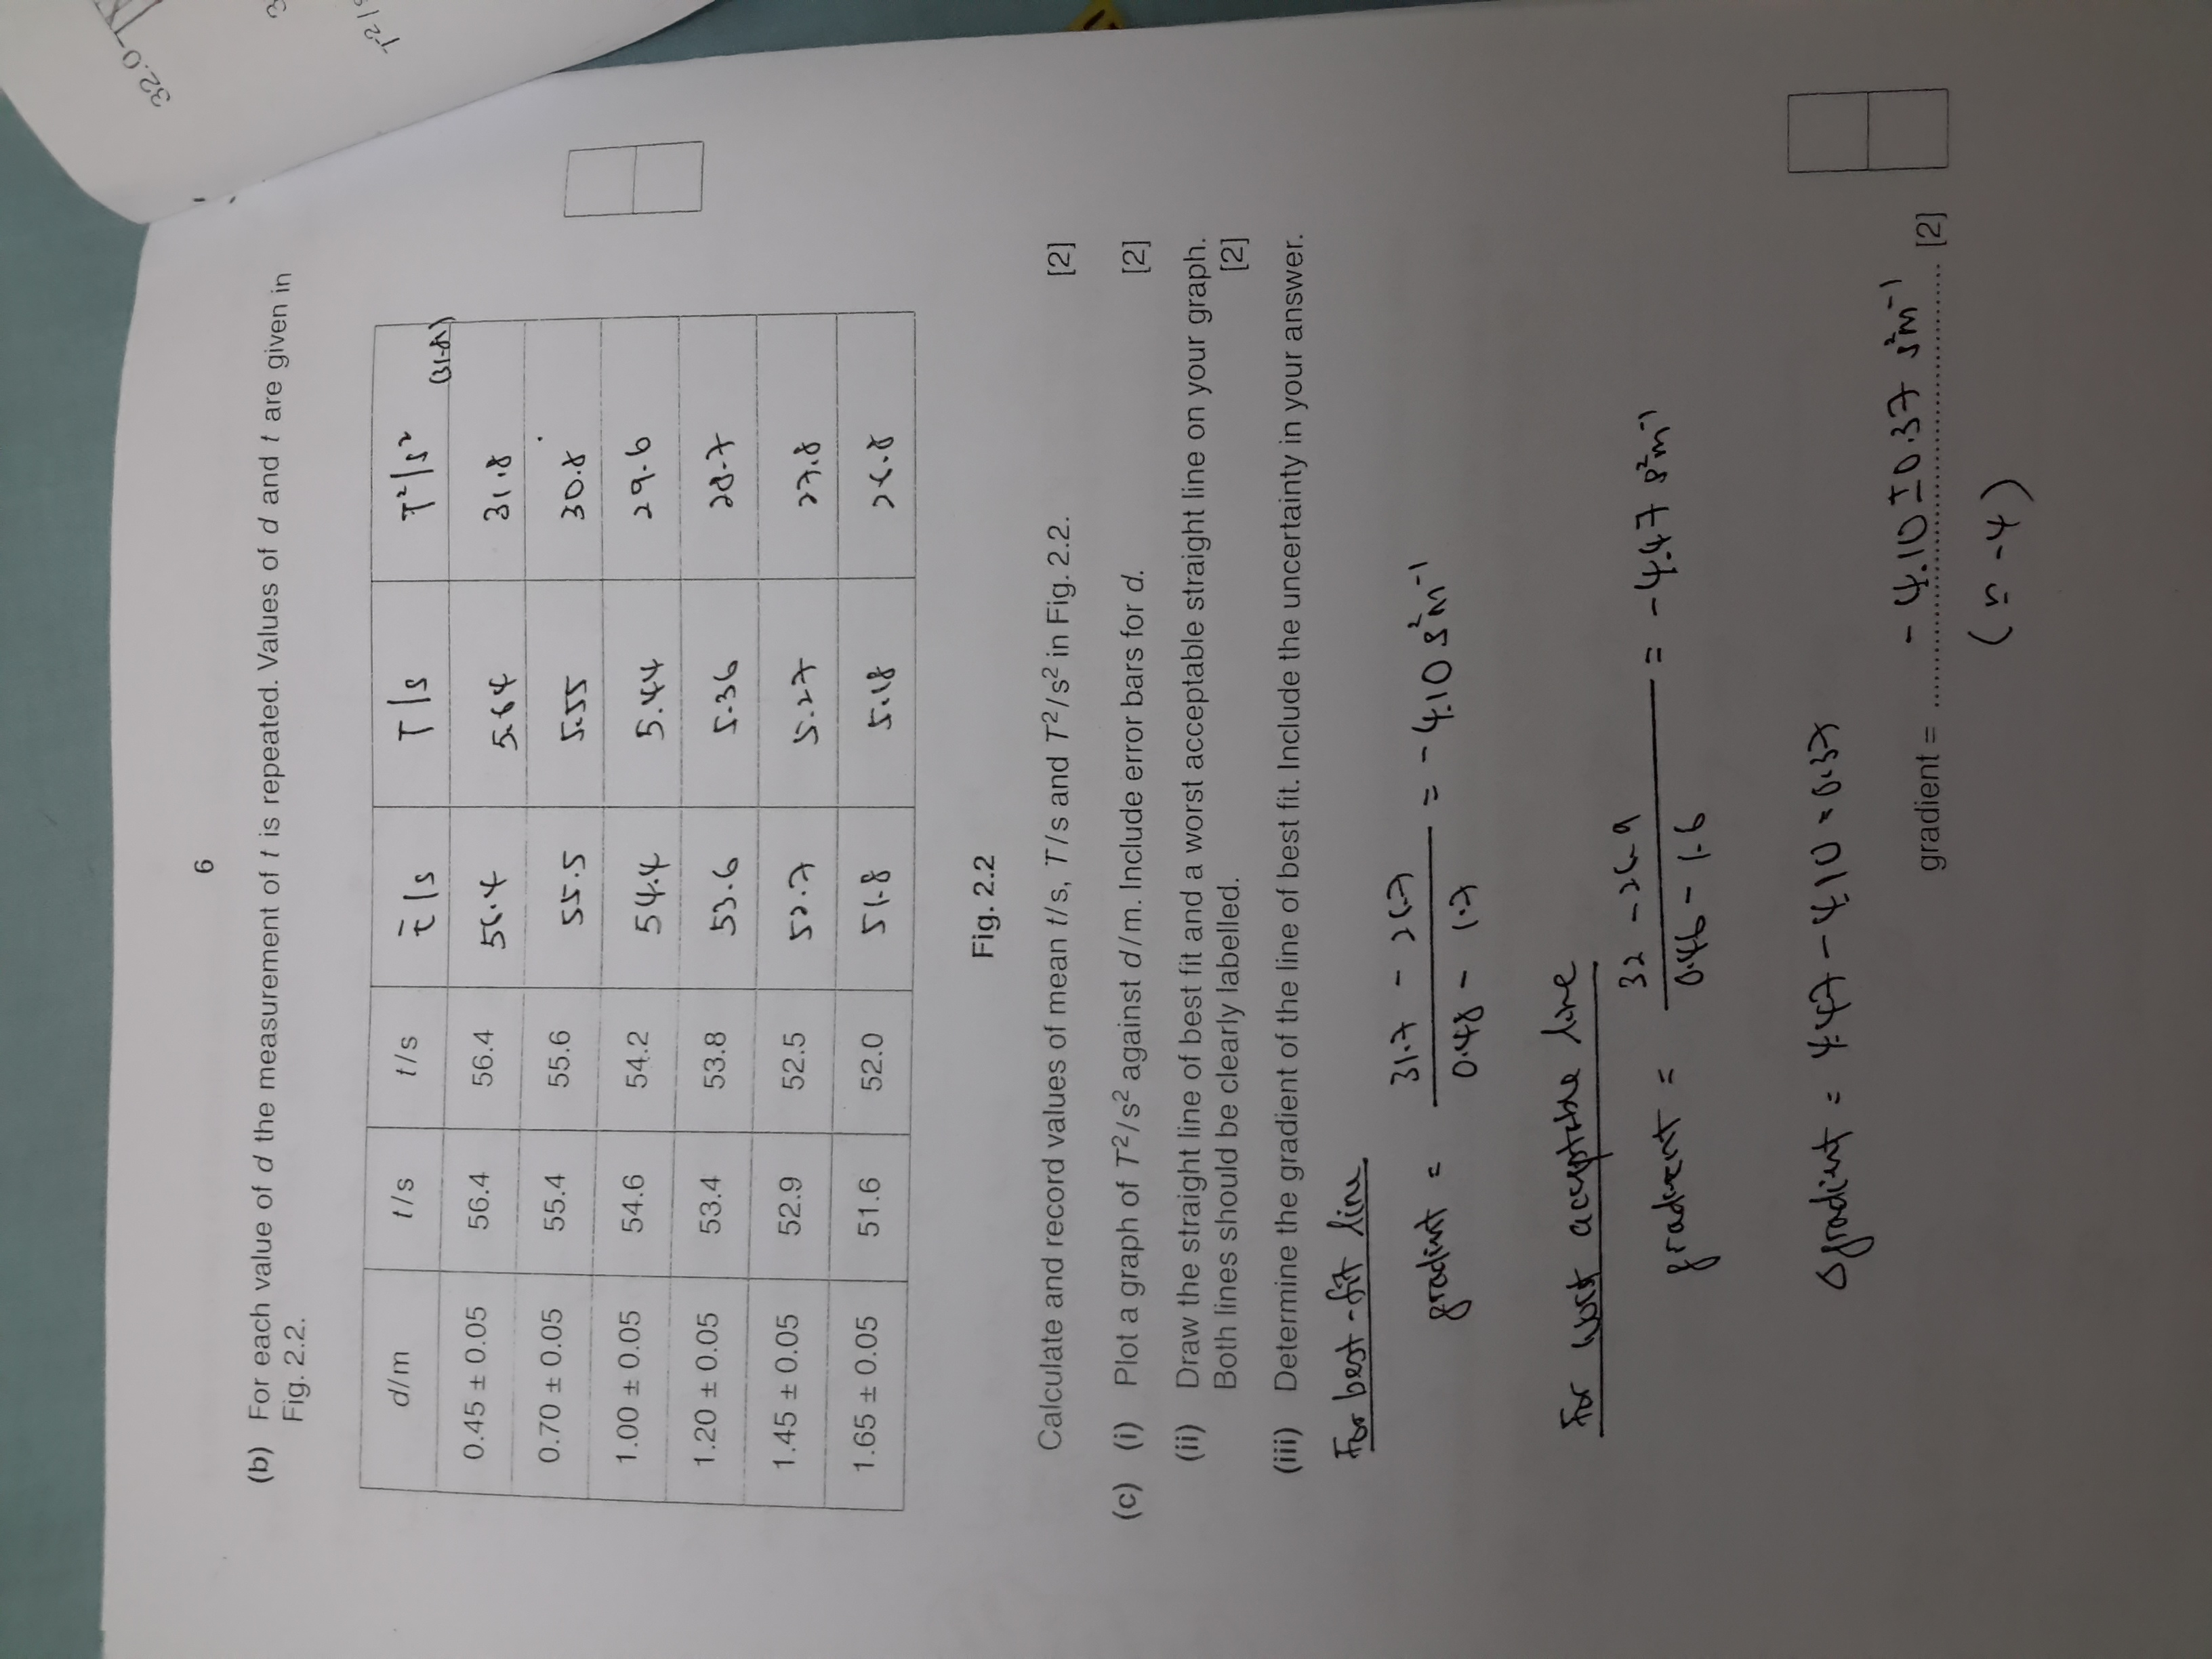 6
(b) For each value of d the measurement of t is repeated. Values of d and t are given in
Fig. 2.2.
d/m t/s t/s t̄/s T/s T²/s²
(31-81)
0.45 ± 0.05 56.4 56.4 56.4 5.64 31.8
0.70 ± 0.05 55.4 55.6 55.5 5.55 30.8
1.00 ± 0.05 54.6 54.2 54.4 5.44 29.6
1.20 ± 0.05 53.4 53.8 53.6 5.36 28.7
1.45 ± 0.05 52.9 52.5 52.7 5.27 27.8
1.65 ± 0.05 51.6 52.0 51.8 5.18 26.8
Fig. 2.2
Calculate and record values of mean t/s, T/s and T²/s² in Fig. 2.2. [2]
(c) (i) Plot a graph of T²/s² against d/m. Include error bars for d. [2]
(ii) Draw the straight line of best fit and a worst acceptable straight line on your graph.
Both lines should be clearly labelled. [2]
(iii) Determine the gradient of the line of best fit. Include the uncertainty in your answer.
For best-fit line
gradint = 31.7 - 26.7 / 0.48 - 1.7 = -4.10 s²m⁻¹
For worst acceptable line
gradient = 32 - 26.9 / 0.46 - 1.6 = -4.47 s²m⁻¹
Δgradient = 4.47 - 4.10 = 0.37
gradient = -4.10 ± 0.37 s²m⁻¹ [2]
32.0
T²/s